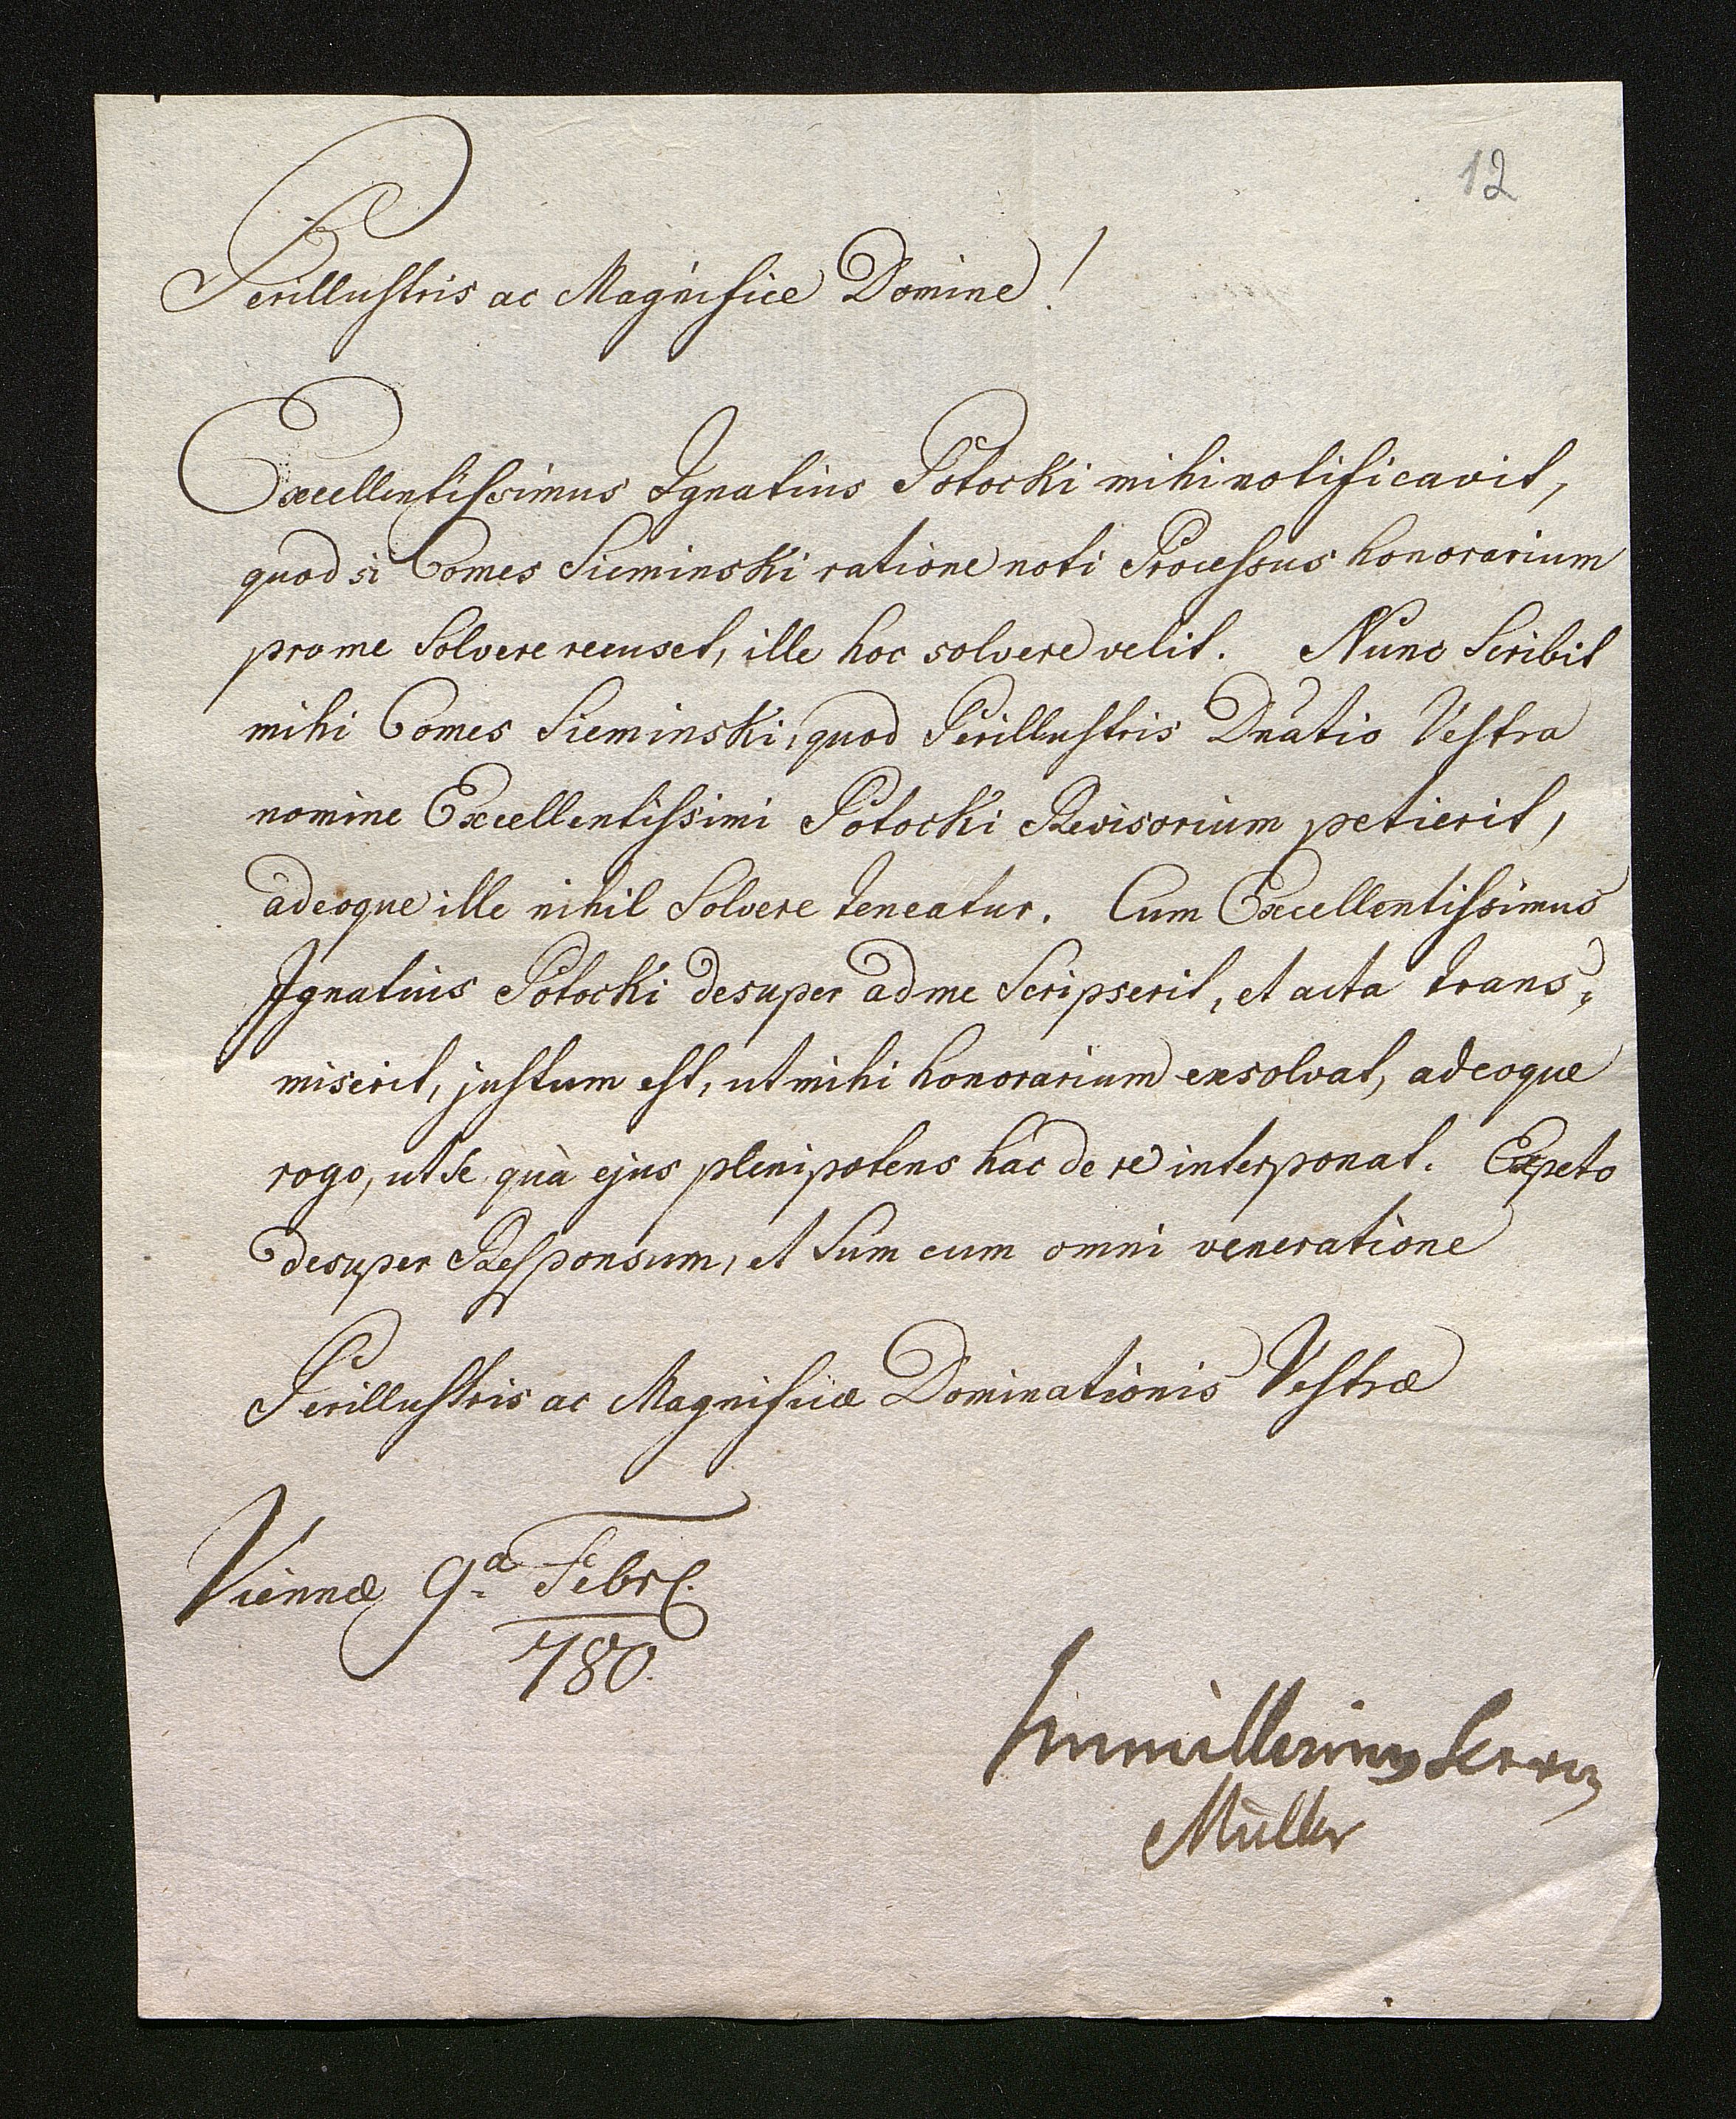 12
Perillustris ac Magnifice Domine!
Excellentissimus Ignatius Potocki mihi notificavit,
quod si Comes Sieminski ratione noti Processus honorarium
pro me Solvere recuset, ille hoc solvere velit. Nunc Scribit
mihi Comes Sieminski, quod Perillustris Dnatio Vestra
nomine Excellentissimi Potocki Revisorium petierit,
adeoque ille nihil Solvere teneatur. Cum Excellentissimus
Ignatius Potocki desuper ad me Scripserit, et acta trans,
miserit, justum est, ut mihi honorarium exsolvat, adeoque
rogo, ut Se quà ejus plenipotens hac de re interponat. Expeto
desuper Responsum, et Sum cum omni veneratione
Perillustris ac Magnificæ Dominationis Vestræ
Viennæ 9a Febr.
780.
Müller